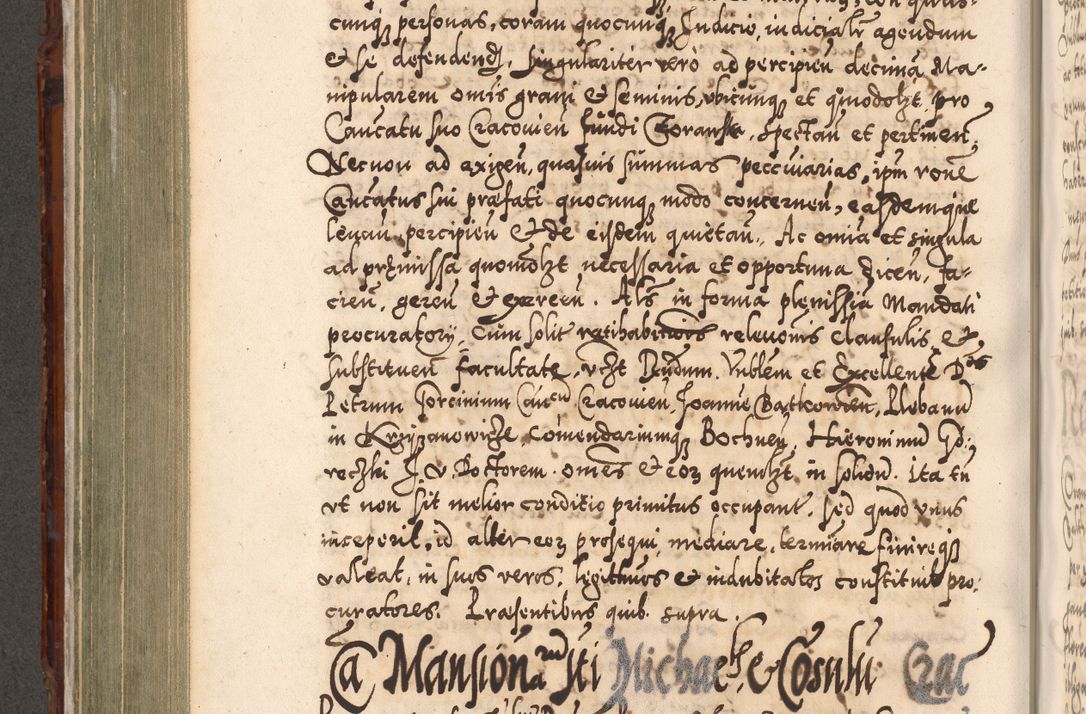 cunq personas, coram quocunq Iudicio, iudicialr agendum
& se defendend, singulariter vero ad percipien decima Ma-
nipularem omis grani & seminis, vbicunq et quomodolzt, pro
Cancatu suo Cracovien fundi spectan et pertinen
Necnon ad exigen, quasuis summas peccuiarias, ipm rone
Cancatus sui præfati quocunq modo concernen, easdemque
leuan percipien & de eisdem quietan, Ac omia et singula
ad præmissa quomolzt necessaria et opportuna dicen, fa-
cien, geren & exercen. Als in forma plenissia Mandati
procuratorÿ, Cum solit ratihabitiois releuonis clausulis, &
substituen facultate, vzt Rndum. Vnblem et Excellente Dos
Petrum Gorcinium Can Cracouien, Joanne Batkowien, Plebanu
in Krzyzanowicze Comendariumq Bochnen, Hieronimu
J. V. Doctorem. omes & eoz quemlzt in solidu. ita tn
vt non sit melior conditio primitus occupant, sed quod vnus
inceperit, id alter eoz prosequi, mediare, termiare finireq
valeat, in suos veros, legittimos & indubitatos constituit pro-
curatores. Præsentibus quib. supra.
Ca Mansiona rum Sti Michaelis, & Cosulu Crac